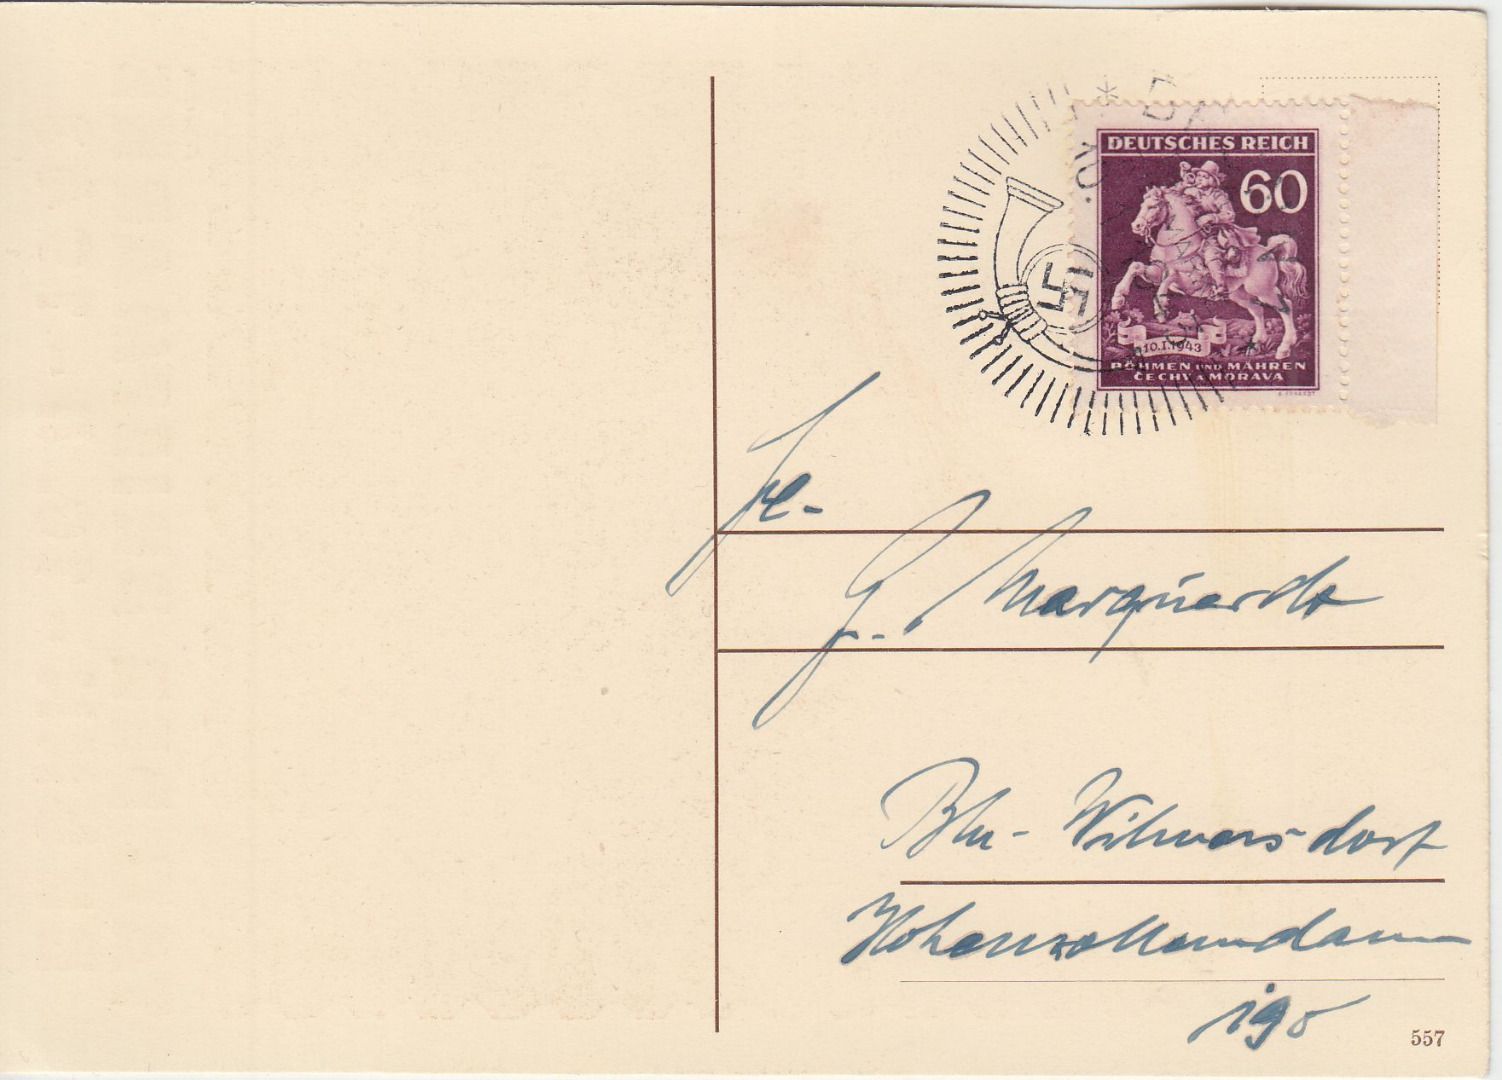 DEUTSCHES REICH
60
10.I.1943
BÖHMEN UND MÄHREN
ČECHY A MORAVA
G. Marquardt
Bln-Wilmersdorf
Hohenzollerndamm
190
557